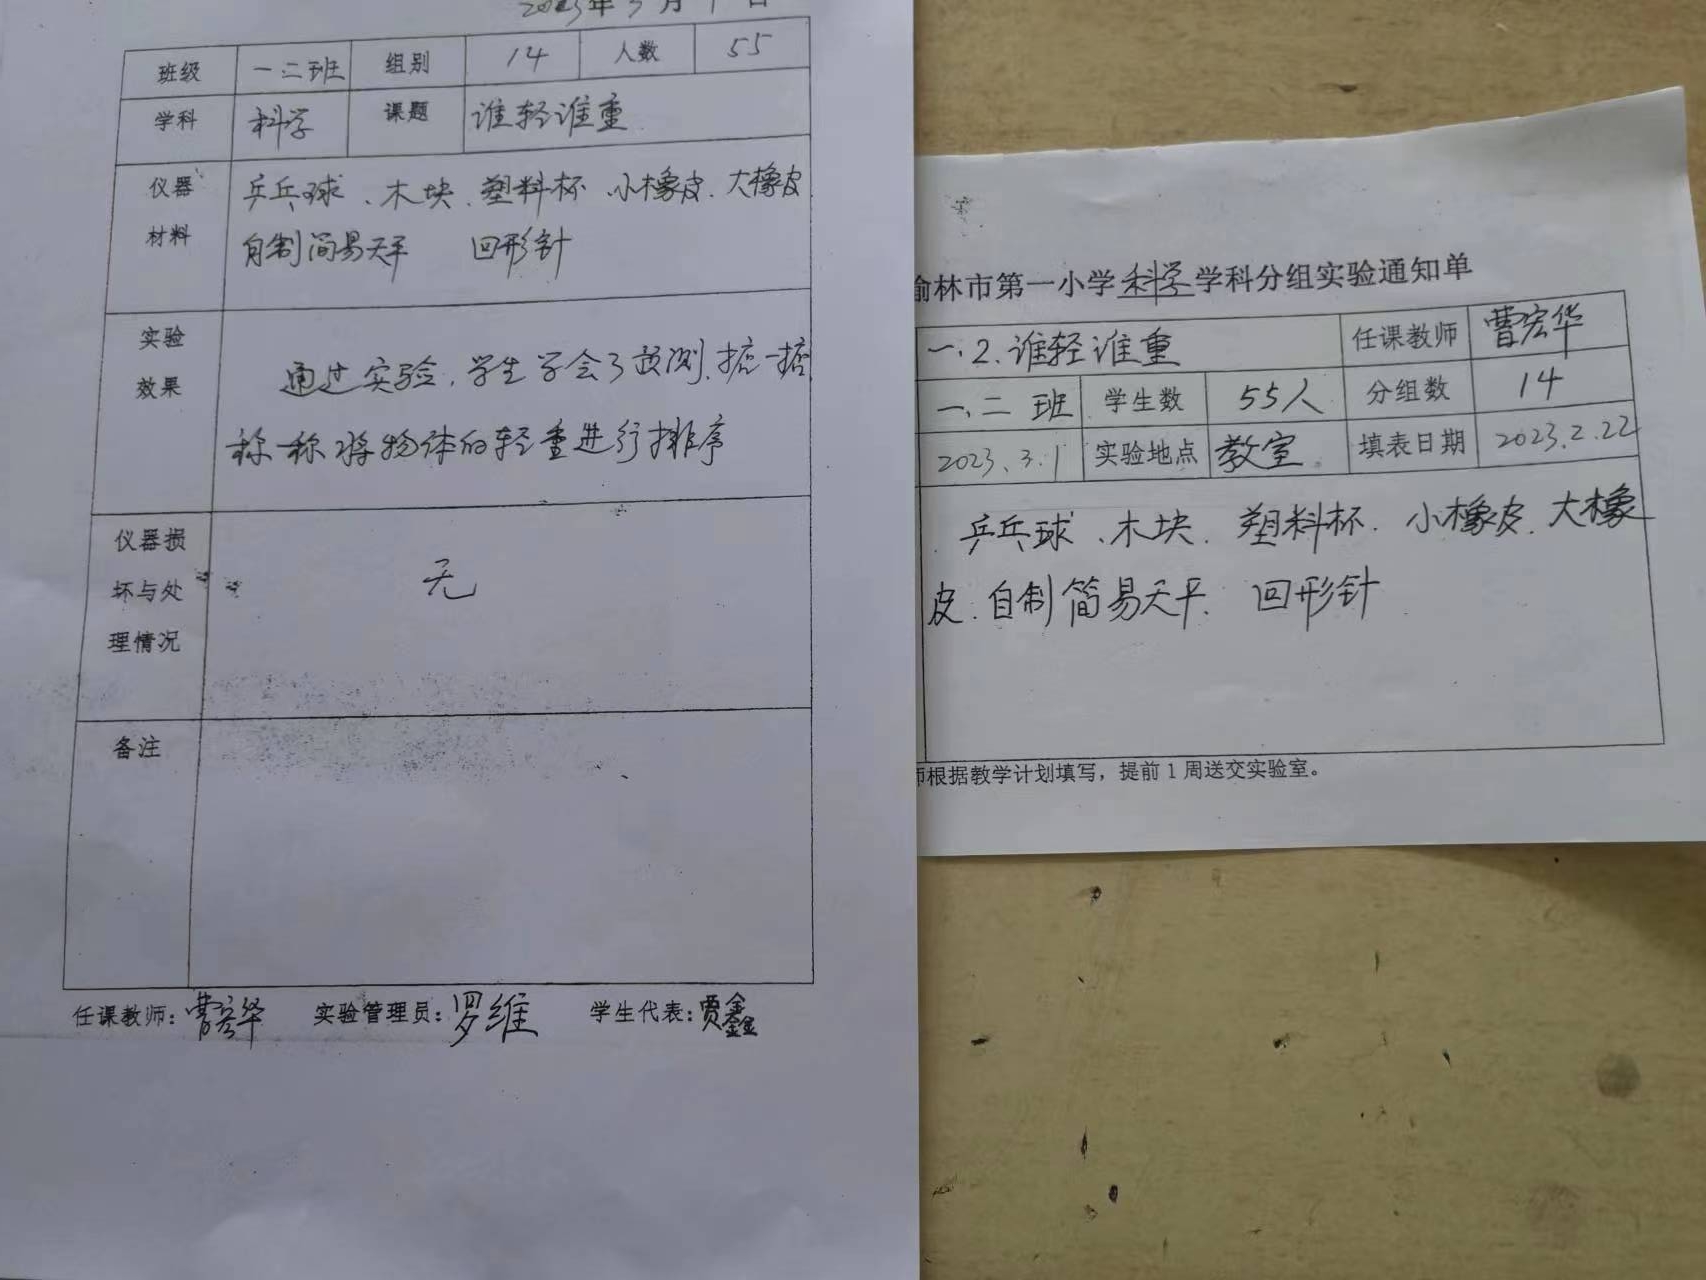 2023年3月1日
班级 一.二班 组别 14 人数 55
学科 科学 课题 谁轻谁重
仪器材料 乒乓球、木块、塑料杯、小橡皮、大橡皮
自制简易天平 回形针
实验效果 通过实验,学生学会了预测、掂一掂
称一称将物体的轻重进行排序
仪器损坏与处理情况 无
备注
任课教师:曹宏华 实验管理员:罗维 学生代表:贾鑫
榆林市第一小学科学学科分组实验通知单
一.2.谁轻谁重 任课教师 曹宏华
一.二 班 学生数 55人 分组数 14
2023.3.1 实验地点 教室 填表日期 2023.2.22
乒乓球、木块、塑料杯、小橡皮、大橡
皮、自制简易天平、回形针
师根据教学计划填写,提前1周送交实验室。